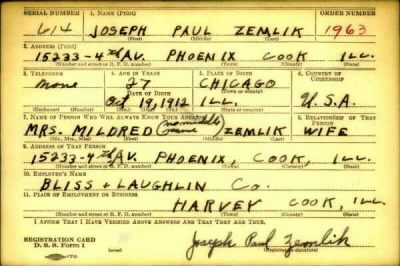 SERIAL NUMBER 1. NAME (Print) ORDER NUMBER
614 JOSEPH PAUL ZEMLIK 1963
(First) (Middle) (Last)
2. ADDRESS (Print)
15233-4th AV. PHOENIX COOK ILL.
(Number and street or R. F. D. number) (Town) (County) (State)
3. TELEPHONE 4. AGE IN YEARS 5. PLACE OF BIRTH 6. COUNTRY OF CITIZENSHIP
none 27 CHICAGO
DATE OF BIRTH (Town or county)
Oct 19, 1912 ILL. U.S.A.
(Exchange) (Number) (Mo.) (Day) (Yr.) (State or country)
7. NAME OF PERSON WHO WILL ALWAYS KNOW YOUR ADDRESS 8. RELATIONSHIP OF THAT PERSON
MRS. MILDRED ZEMLIK WIFE
(Mr., Mrs., Miss) (First) (Middle) (Last)
9. ADDRESS OF THAT PERSON
15233-4th AV. PHOENIX, COOK, ILL.
(Number and street or R. F. D. number) (Town) (County) (State)
10. EMPLOYER'S NAME
BLISS + LAUGHLIN CO.
11. PLACE OF EMPLOYMENT OR BUSINESS
HARVEY COOK, ILL.
(Number and street or R. F. D. number) (Town) (County) (State)
I AFFIRM THAT I HAVE VERIFIED ABOVE ANSWERS AND THAT THEY ARE TRUE.
REGISTRATION CARD
D. S. S. Form 1 Joseph Paul Zemlik
(Registrant's signature)